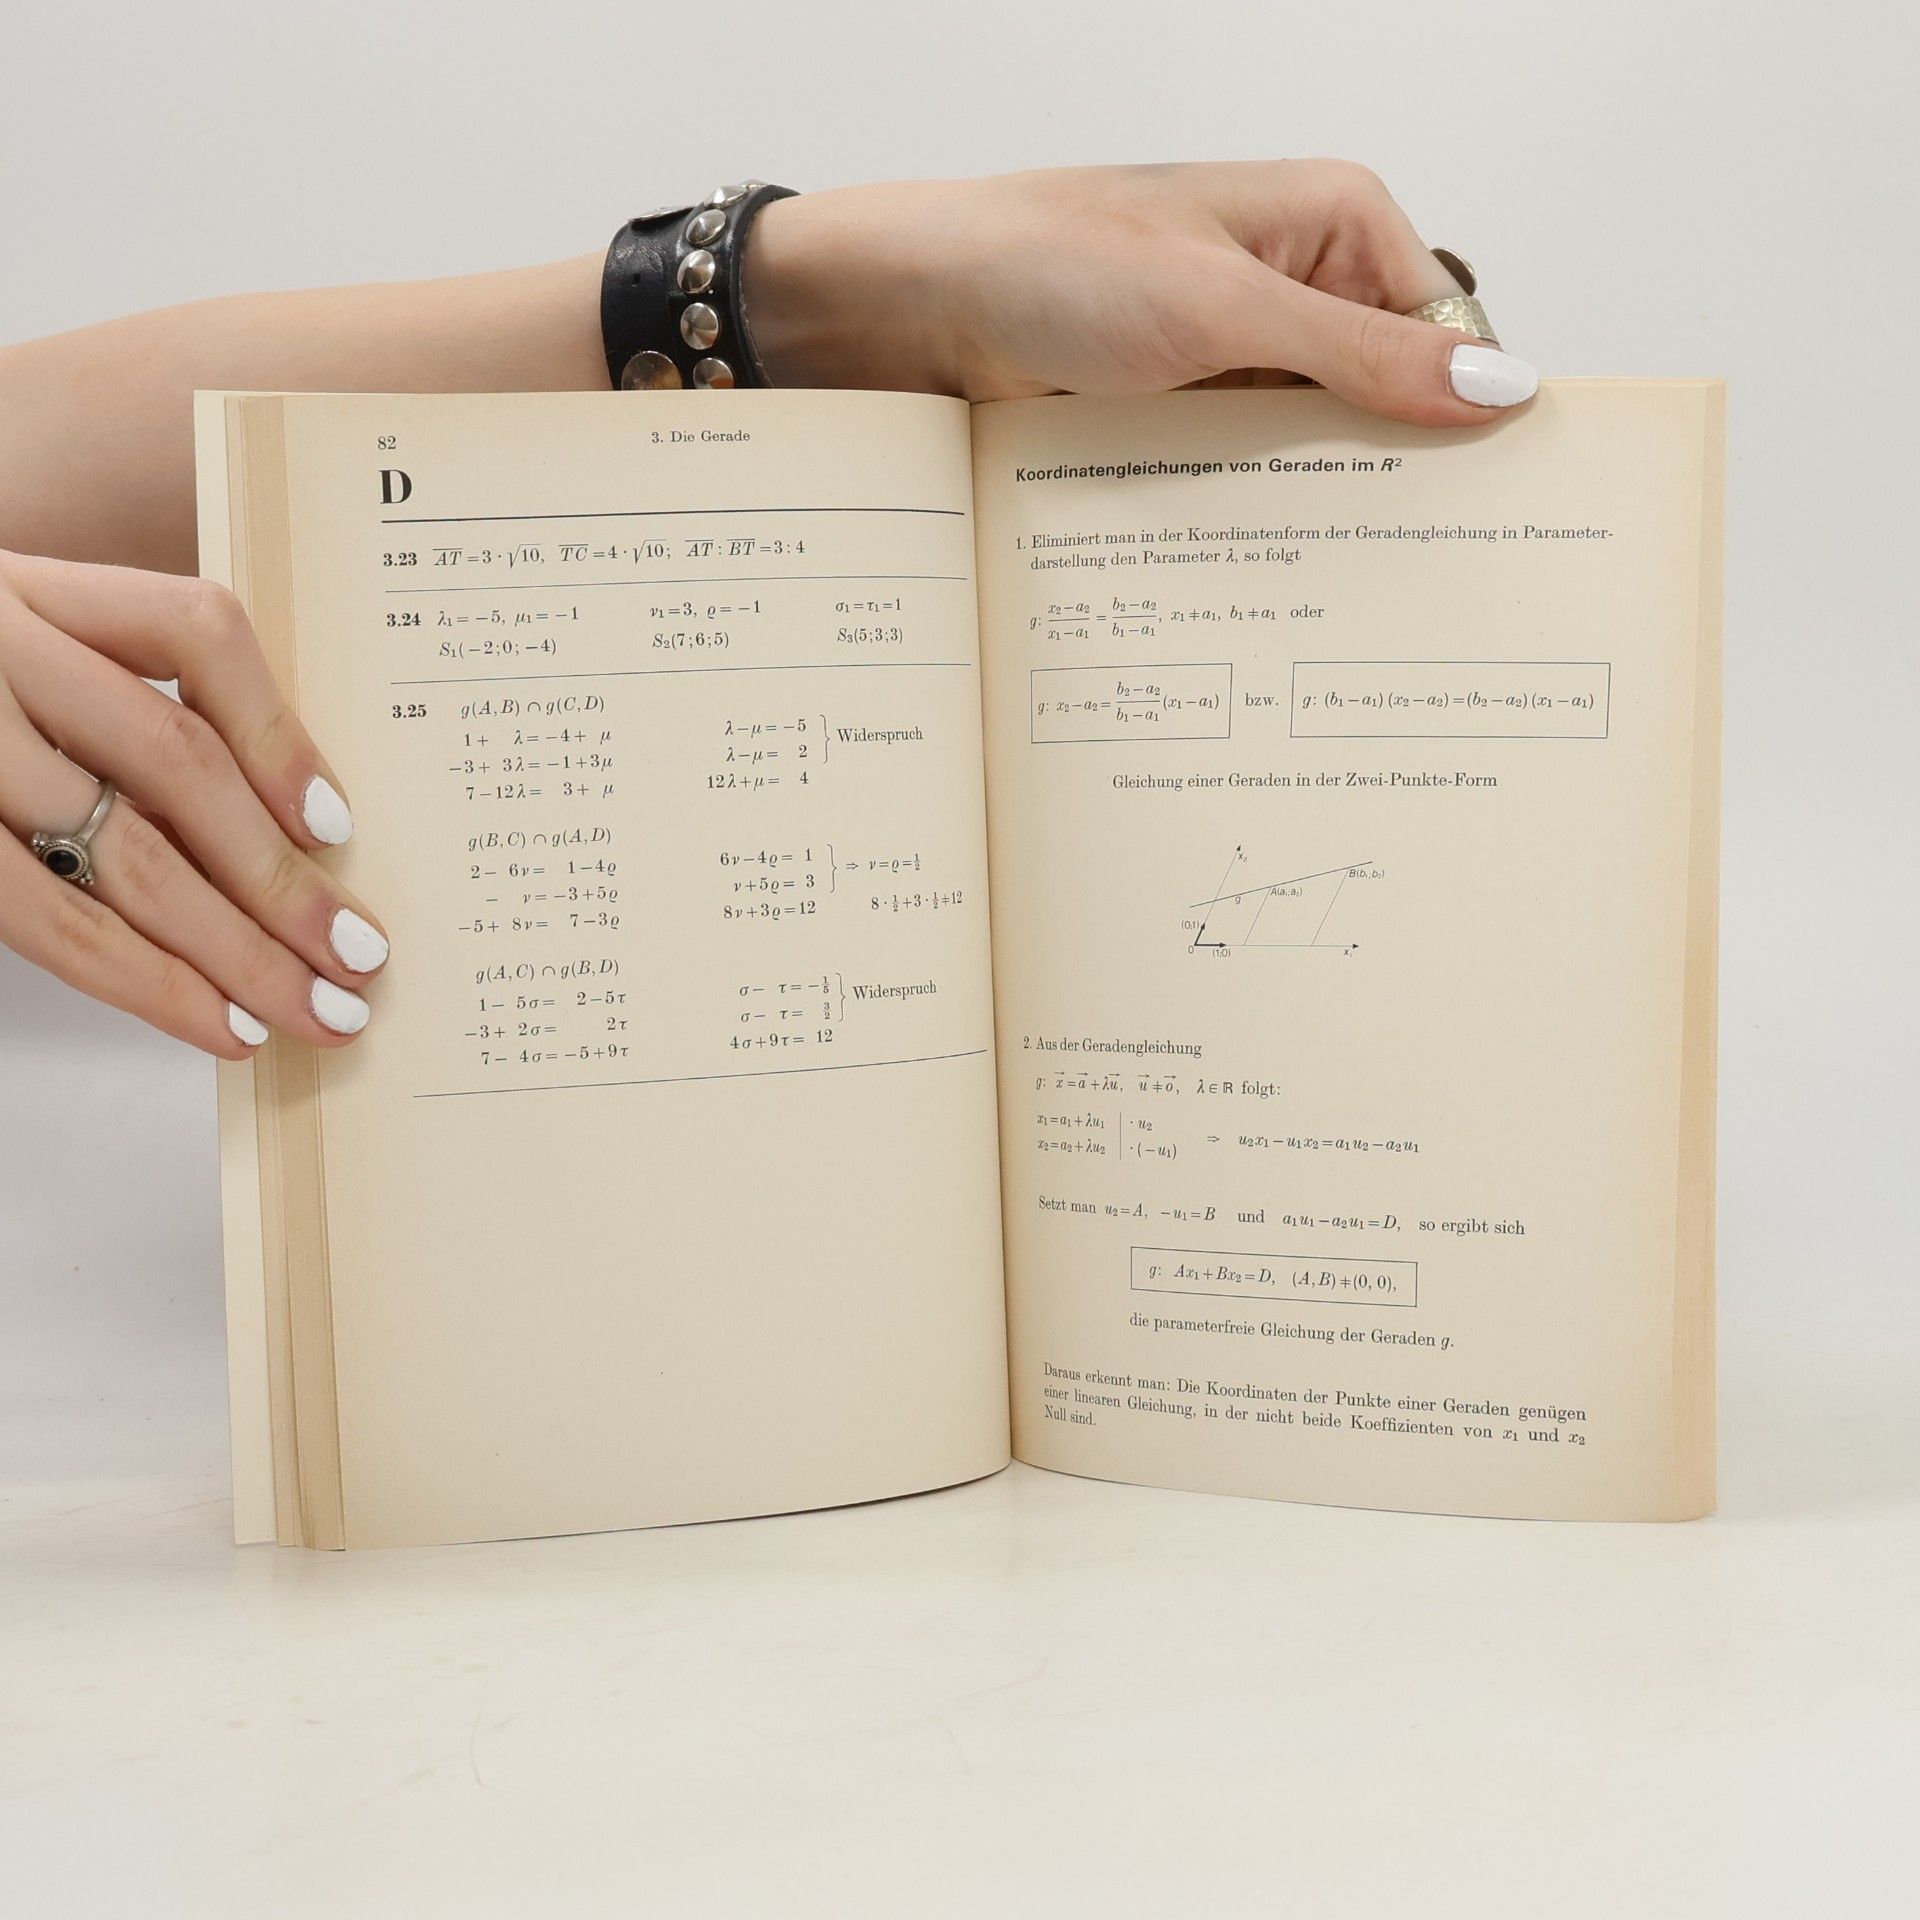 82
3. Die Gerade
D
3.23 AT = 3 · √10, TC = 4 · √10; AT : BT = 3 : 4
3.24 λ₁ = −5, μ₁ = −1 ν₁ = 3, ϱ = −1 σ₁ = τ₁ = 1
S₁(−2;0; −4) S₂(7;6;5) S₃(5;3;3)
3.25 g(A,B) ∩ g(C,D)
1+ λ = −4+ μ λ−μ = −5
−3+ 3λ = −1+3μ λ−μ = 2 } Widerspruch
7−12λ = 3+ μ 12λ+μ = 4
g(B,C) ∩ g(A,D)
2− 6ν = 1−4ϱ 6ν−4ϱ = 1
− ν = −3+5ϱ ν+5ϱ = 3 } ⇒ ν = ϱ = ½
−5+ 8ν = 7−3ϱ 8ν+3ϱ = 12 8·½+3·½ ≠ 12
g(A,C) ∩ g(B,D)
1− 5σ = 2−5τ σ− τ = −⅕
−3+ 2σ = 2τ σ− τ = 3/2 } Widerspruch
7− 4σ = −5+9τ 4σ+9τ = 12
Koordinatengleichungen von Geraden im R²
1. Eliminiert man in der Koordinatenform der Geradengleichung in Parameter-
darstellung den Parameter λ, so folgt
g: (x₂−a₂)/(x₁−a₁) = (b₂−a₂)/(b₁−a₁), x₁≠a₁, b₁≠a₁ oder
g: x₂−a₂ = (b₂−a₂)/(b₁−a₁) (x₁−a₁) bzw. g: (b₁−a₁)(x₂−a₂) = (b₂−a₂)(x₁−a₁)
Gleichung einer Geraden in der Zwei-Punkte-Form
x₂
B(b₁;b₂)
A(a₁;a₂)
g
(0;1)
0 (1;0) x₁
2. Aus der Geradengleichung
g: x⃗ = a⃗ + λu⃗, u⃗ ≠ o⃗, λ ∈ ℝ folgt:
x₁ = a₁ + λu₁ | · u₂
x₂ = a₂ + λu₂ | · (−u₁) ⇒ u₂x₁ − u₁x₂ = a₁u₂ − a₂u₁
Setzt man u₂ = A, −u₁ = B und a₁u₁ − a₂u₁ = D, so ergibt sich
g: Ax₁ + Bx₂ = D, (A,B) ≠ (0, 0),
die parameterfreie Gleichung der Geraden g.
Daraus erkennt man: Die Koordinaten der Punkte einer Geraden genügen
einer linearen Gleichung, in der nicht beide Koeffizienten von x₁ und x₂
Null sind.